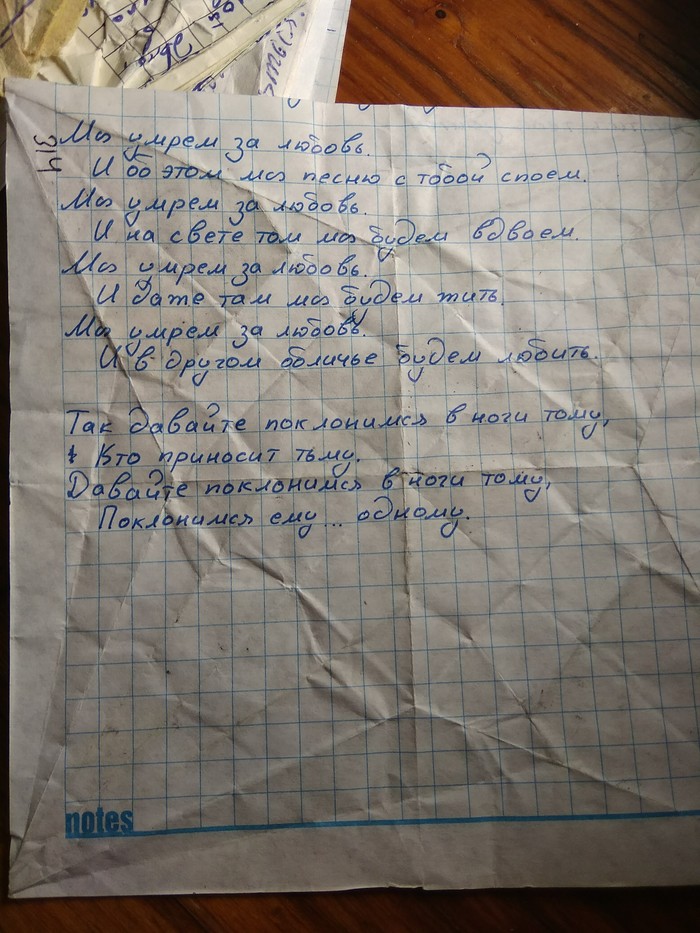 314
Мы умрем за любовь.
И об этом мы песню с тобой споем.
Мы умрем за любовь.
И на свете том мы будем вдвоем.
Мы умрем за любовь.
И даже там мы будем жить.
Мы умрем за любовь.
И в другом обличье будем любить.
Так давайте поклонимся в ноги тому,
Кто приносит тьму.
Давайте поклонимся в ноги тому,
Поклонимся ему... одному.
notes